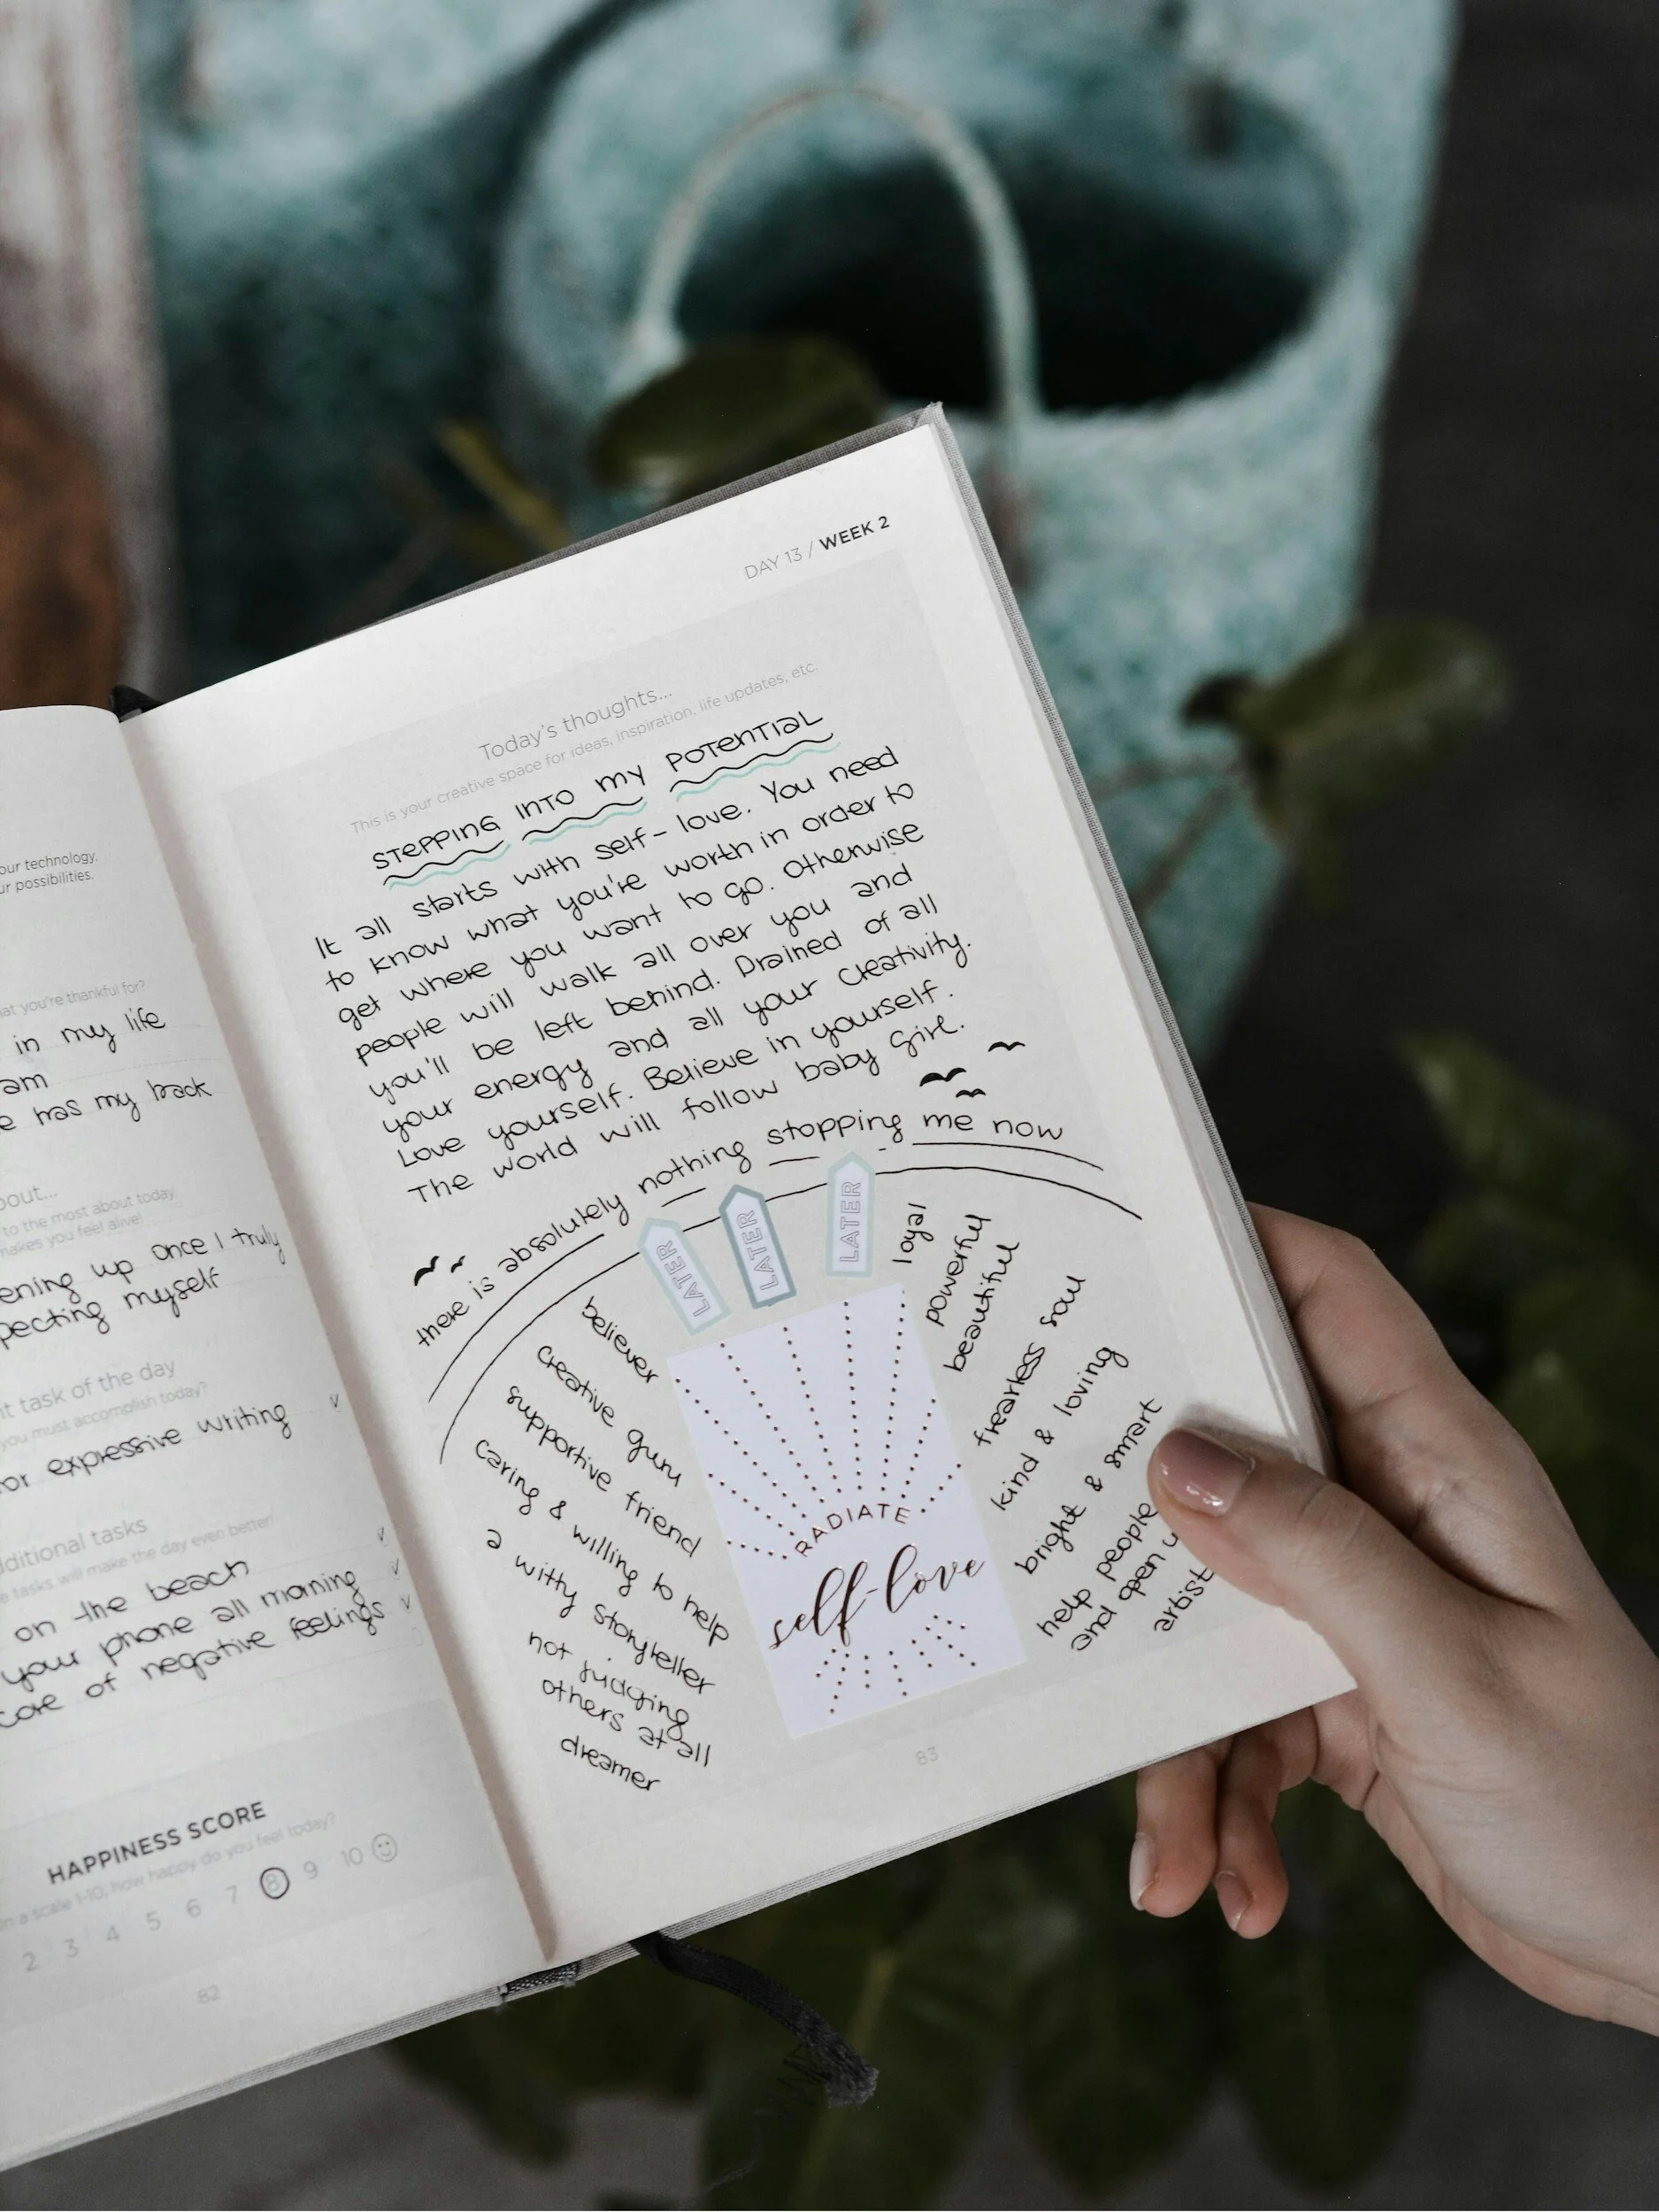 our technology,
ur possibilities.
at you're thankful for?
in my life
am
e has my back
bout...
to the most about today,
makes you feel alive!
ening up once I truly
pecting myself
nt task of the day
you must accomplish today?
or expressive writing
dditional tasks
e tasks will make the day even better!
on the beach
your phone all morning
core of negative feelings
HAPPINESS SCORE
on a scale 1-10, how happy do you feel today?
2 3 4 5 6 7 8 9 10
82
DAY 13 / WEEK 2
Today's thoughts...
This is your creative space for ideas, inspiration, life updates, etc.
STEPPING INTO MY POTENTIAL
It all starts with self-love. You need
to know what you're worth in order to
get where you want to go. Otherwise
people will walk all over you and
you'll be left behind. Drained of all
your energy and all your creativity.
Love yourself. Believe in yourself.
The world will follow baby girl.
there is absolutely nothing stopping me now
LATER
LATER
LATER
believer
creative guru
supportive friend
caring & willing to help
a witty storyteller
not judging
others at all
dreamer
loyal
powerful
beautiful
fearless soul
kind & loving
bright & smart
help people
and open u
artist
RADIATE
self-love
83